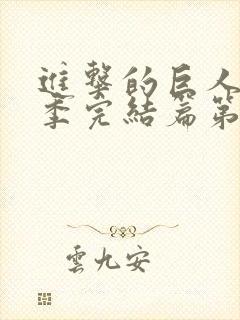 進擊的巨人
季完結篇第
雲九安